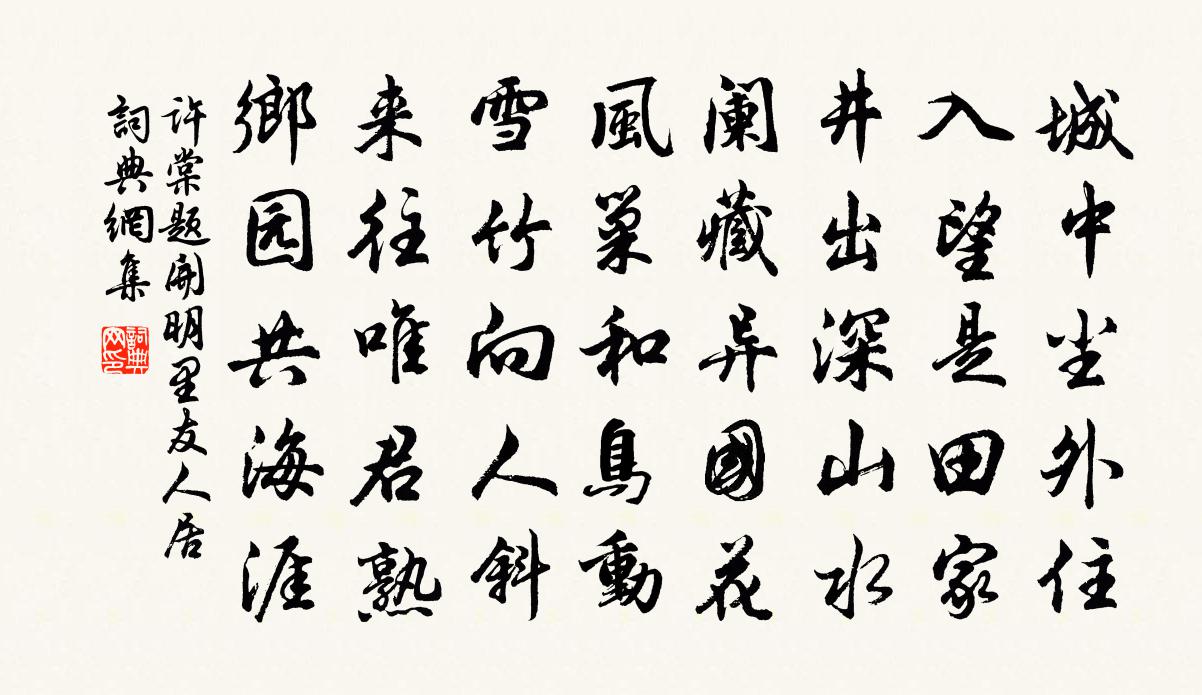 城中尘外住
入望是田家
井出深山水
阑藏异國花
風巢和鳥動
雪竹向人斜
来往唯君熟
鄉园共海涯
许棠题開明里友人居
詞典網集
詞典网印